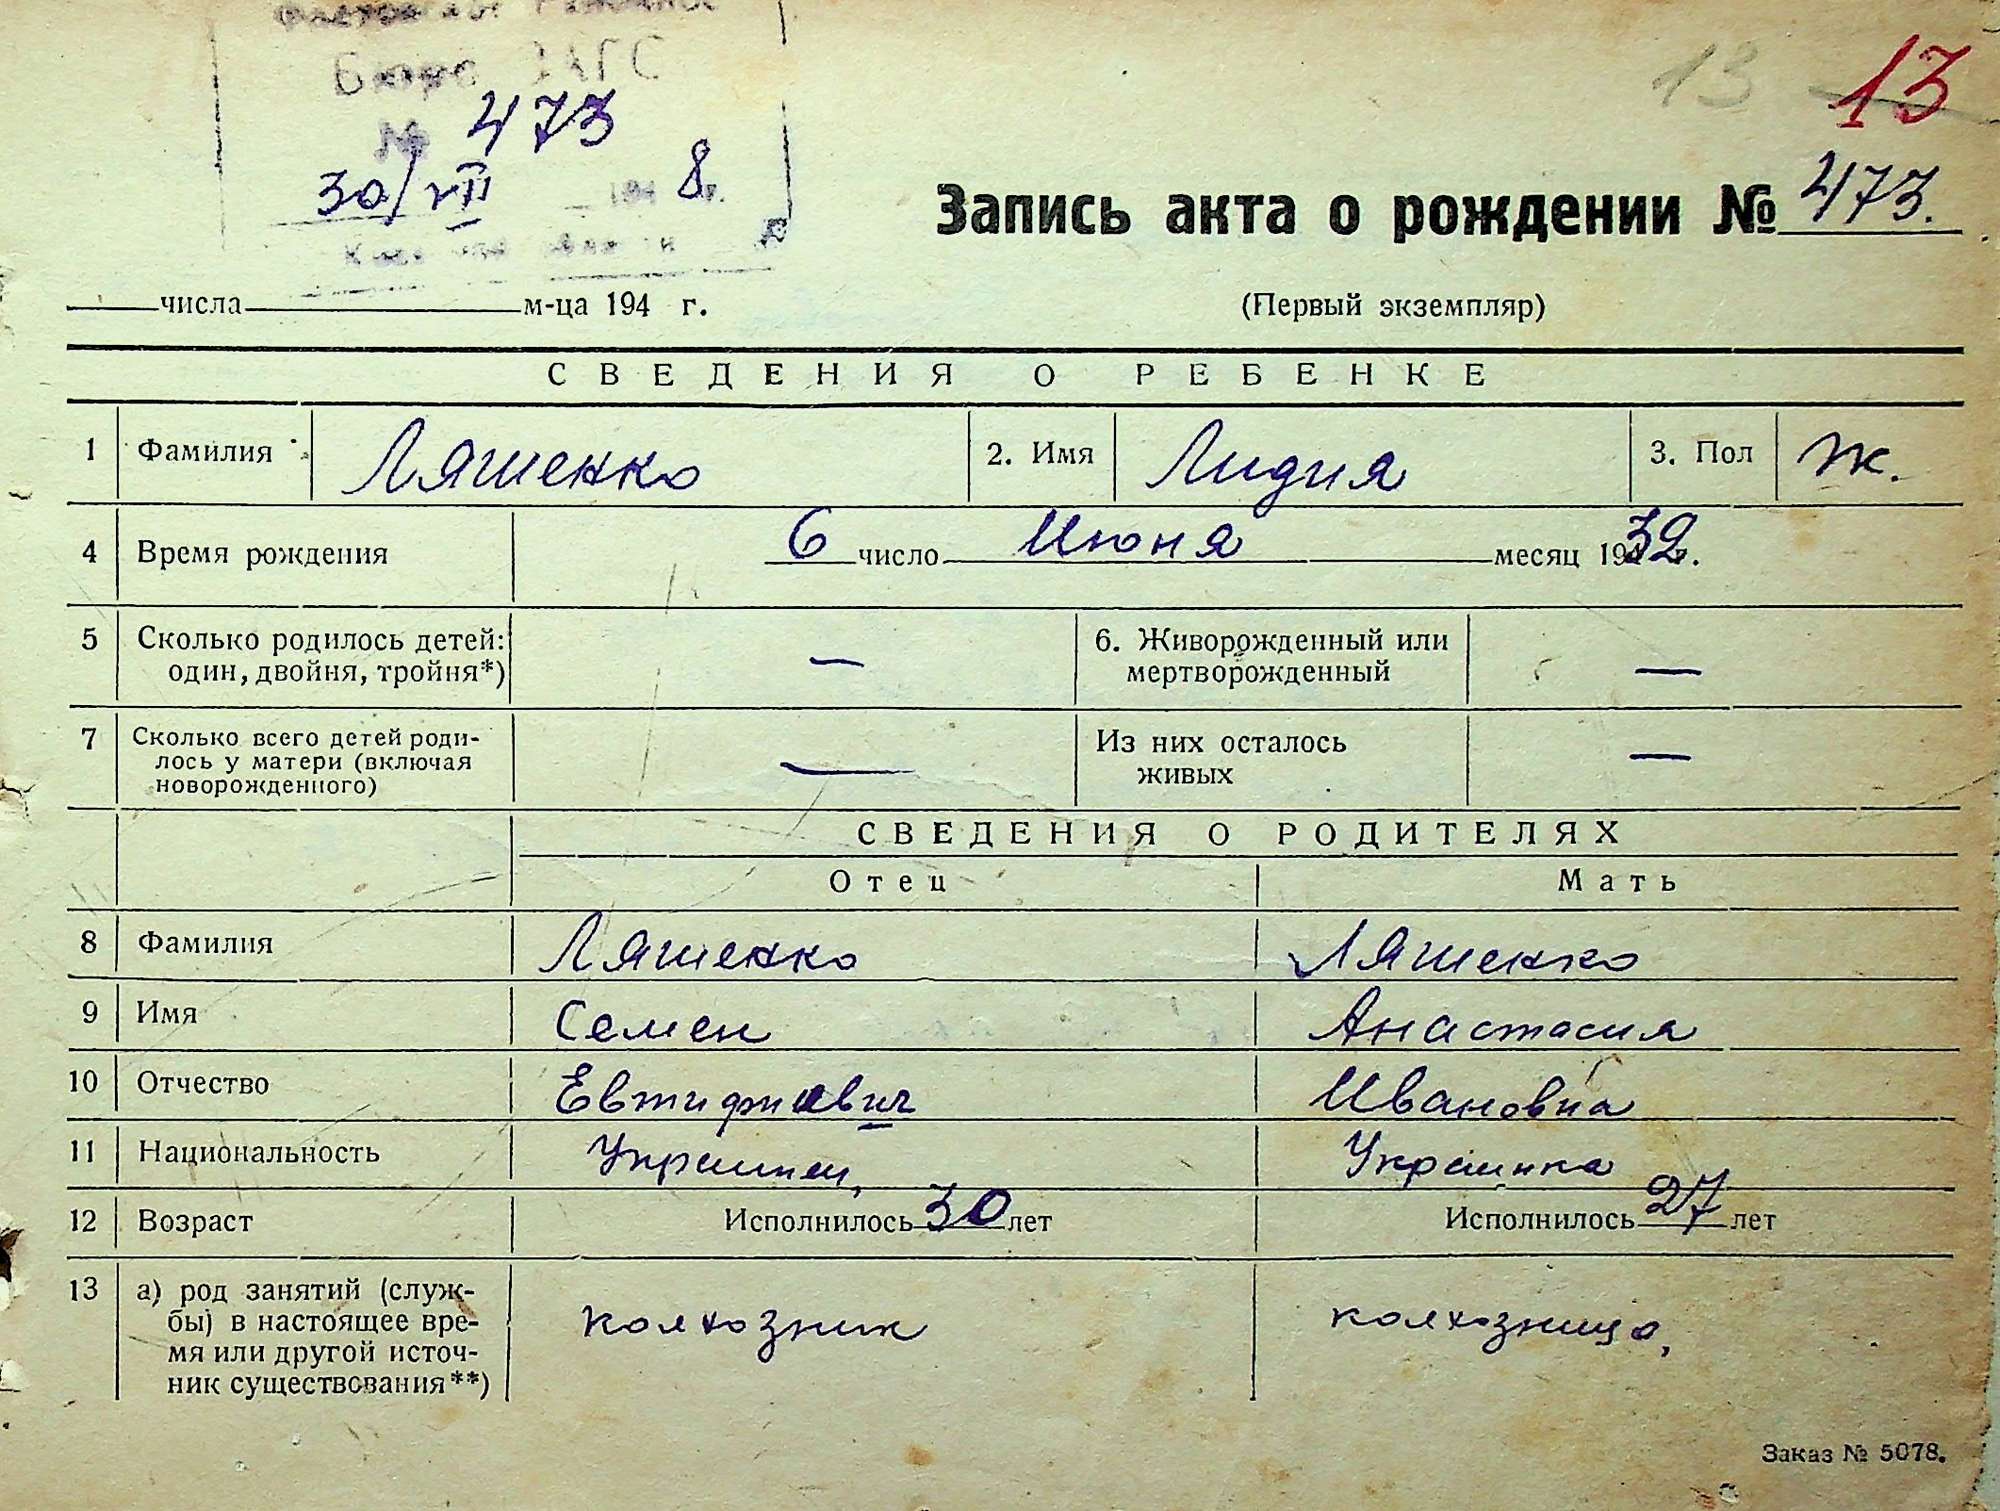 Бюро ЗАГС
№ 473
30/VII 1948 г.
13 13
Запись акта о рождении № 473.
числа м-ца 194 г.
(Первый экземпляр)
СВЕДЕНИЯ О РЕБЕНКЕ
1 Фамилия Ляшенко 2. Имя Лидия 3. Пол Ж.
4 Время рождения 6 число Июня месяц 1932 г.
5 Сколько родилось детей: — 6. Живорожденный или —
один, двойня, тройня*) мертворожденный
7 Сколько всего детей роди- — Из них осталось —
лось у матери (включая живых
новорожденного)
СВЕДЕНИЯ О РОДИТЕЛЯХ
Отец Мать
8 Фамилия Ляшенко Ляшенко
9 Имя Семен Анастасия
10 Отчество Ивановна
11 Национальность Украинец, Украинка
12 Возраст Исполнилось 30 лет Исполнилось 27 лет
13 а) род занятий (служ- колхозник колхозница,
бы) в настоящее вре-
мя или другой источ-
ник существования**)
Заказ № 5078.